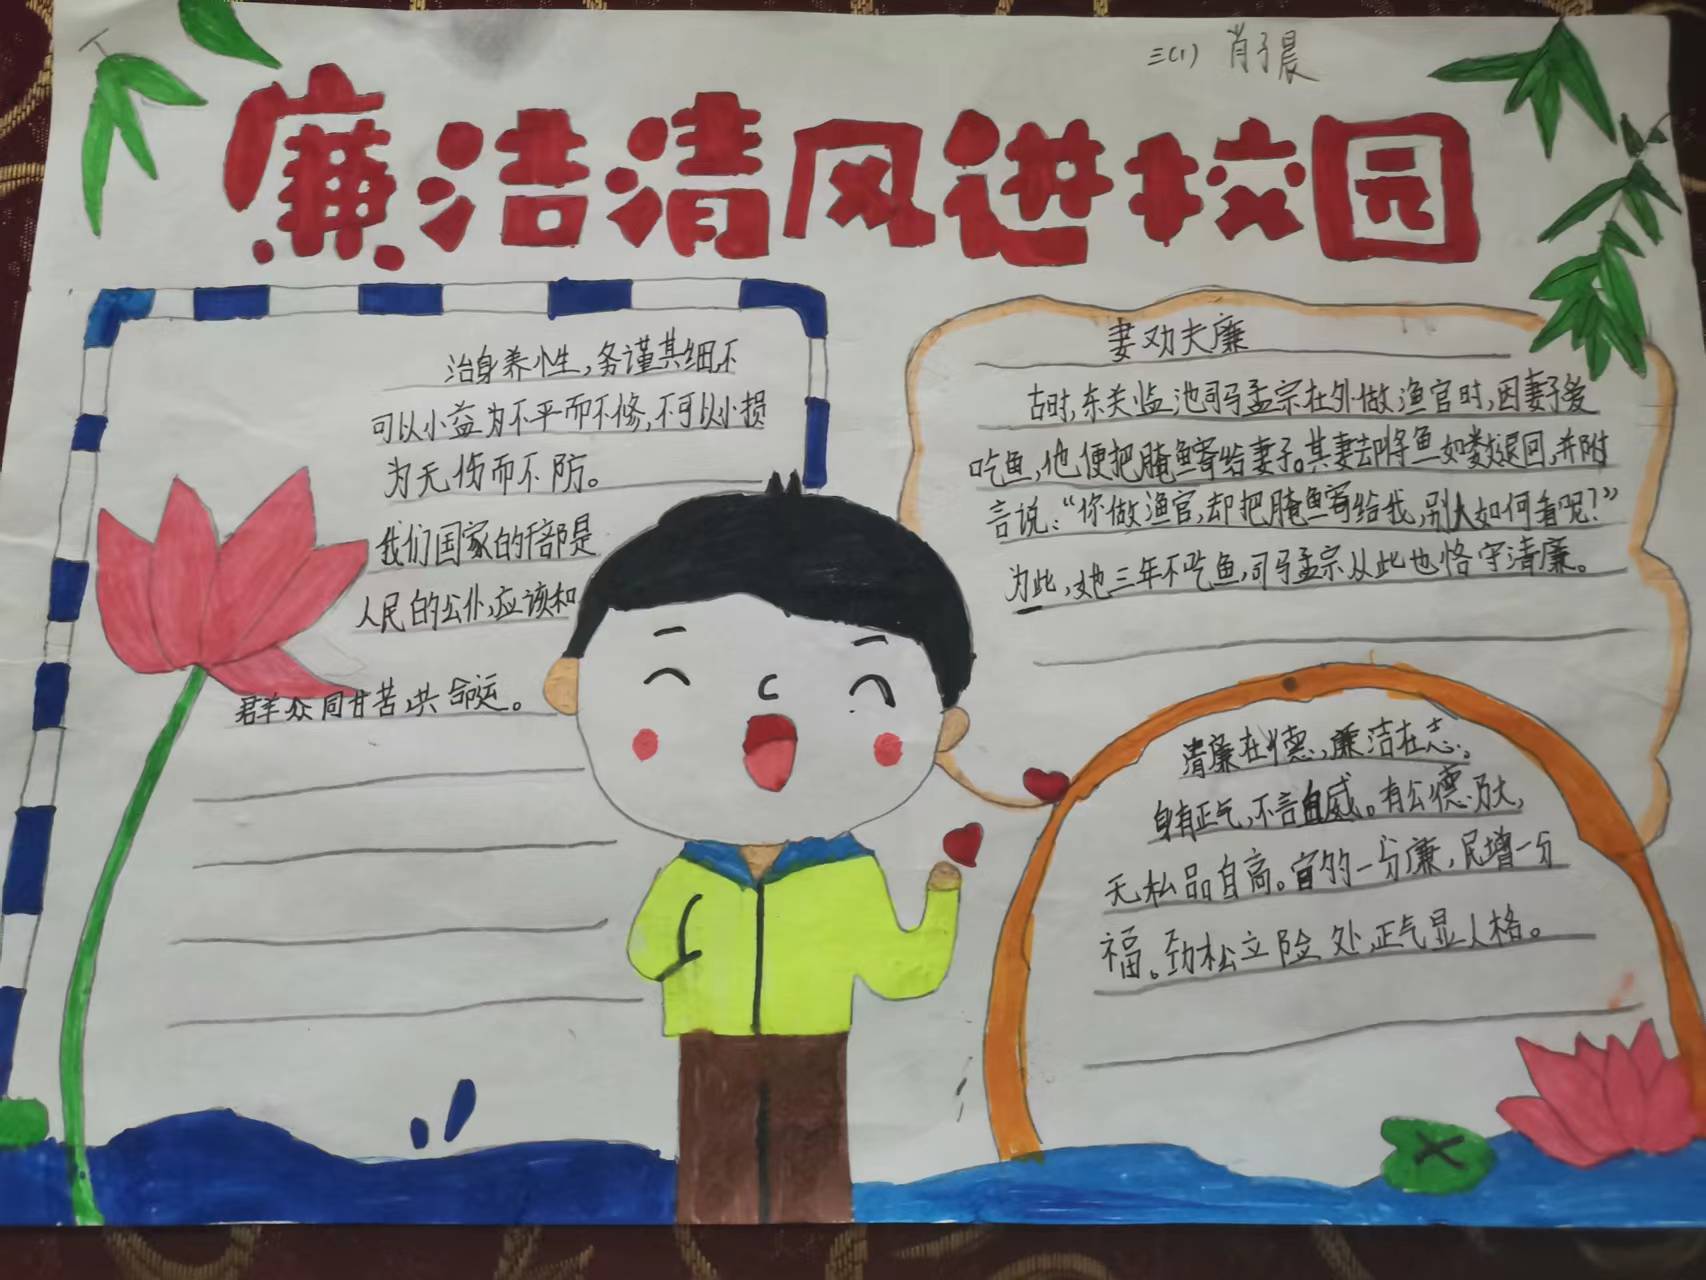 三(1) 肖子晨
廉洁清风进校园
治身养小性,务谨其细不
可以小益为不平而不修,不可以小损
为无伤而不防。
我们国家的干部是
人民的公仆,应该和
群众同甘苦,共命运。
妻劝夫廉
古时,东关监池司马孟宗在外做渔官时,因妻子爱
吃鱼,他便把腌鱼寄给妻子。其妻却将鱼如数退回,并附
言说:“你做渔官,却把腌鱼寄给我,别人如何看呢?”
为此,她三年不吃鱼,司马孟宗从此也恪守清廉。
清廉在德,廉洁在志。
身有正气,不言自威。有公德乃大,
无私品自高。官的一分廉,民增一分
福。劲松立险处,正气显人格。